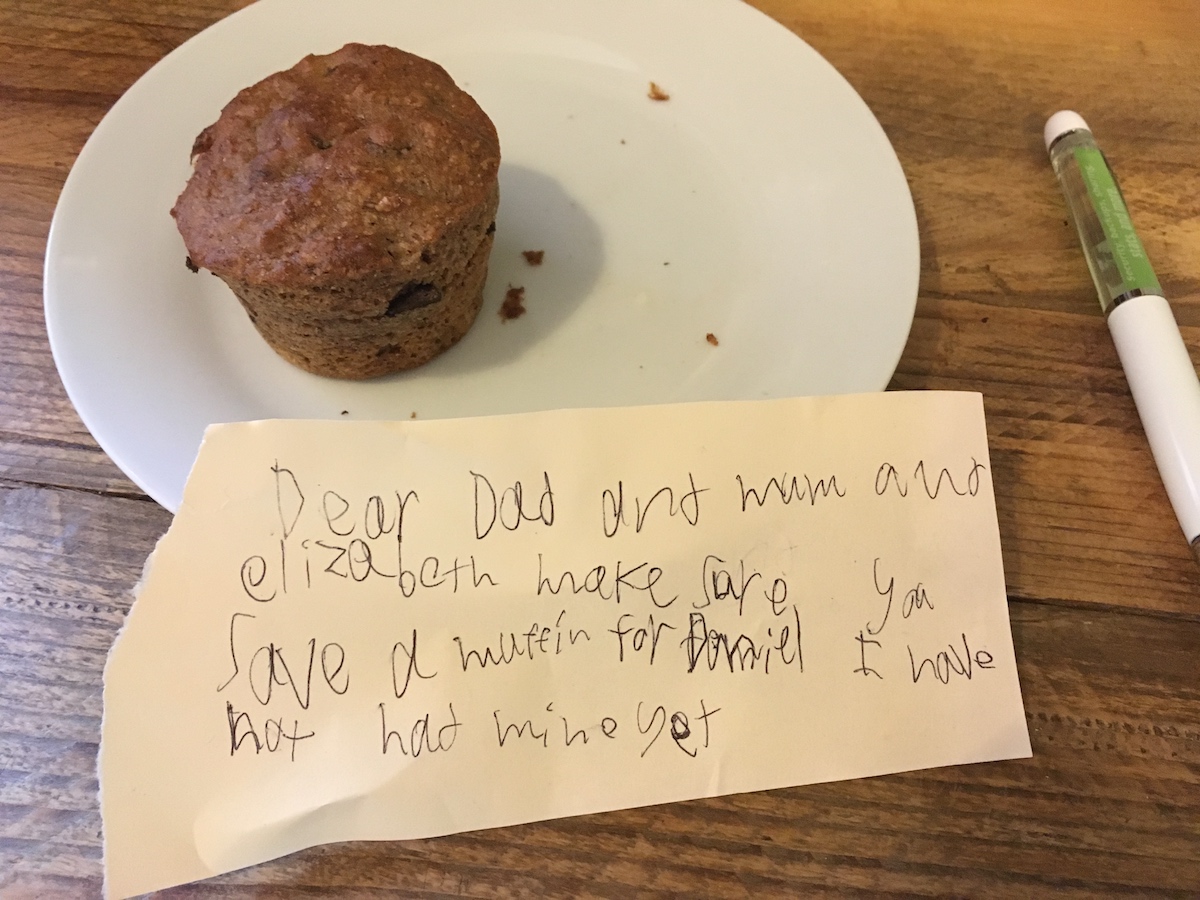 Dear Dad and mum and
elizabeth make sare you
Save a muffin for Daniel I have
not had mine yet